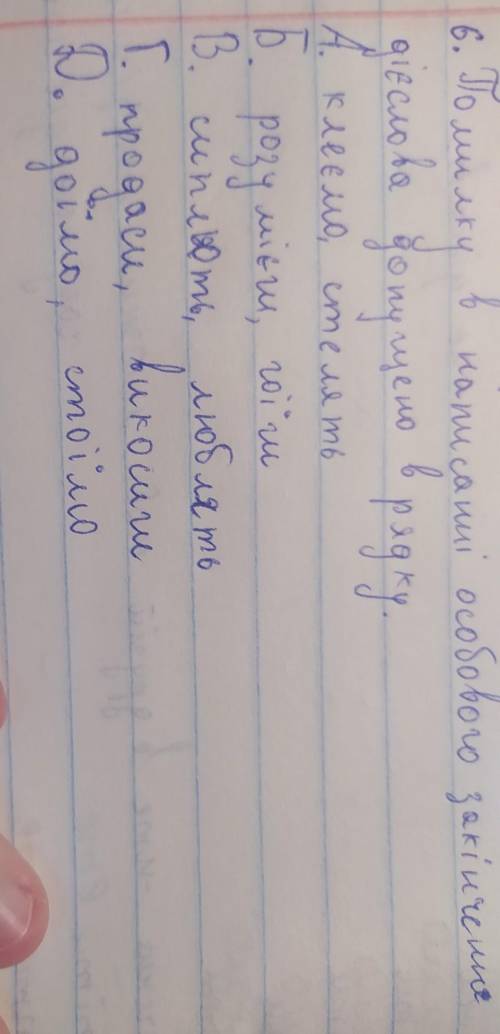 6. Помилку в написанні особового закінчення
дієслова допущено в рядку.
А. клеємо, стелять
Б. розумієш, гоїш
В. сиплють, люблять
Г. продаси, викосиш
Д. доїмо, стоїмо